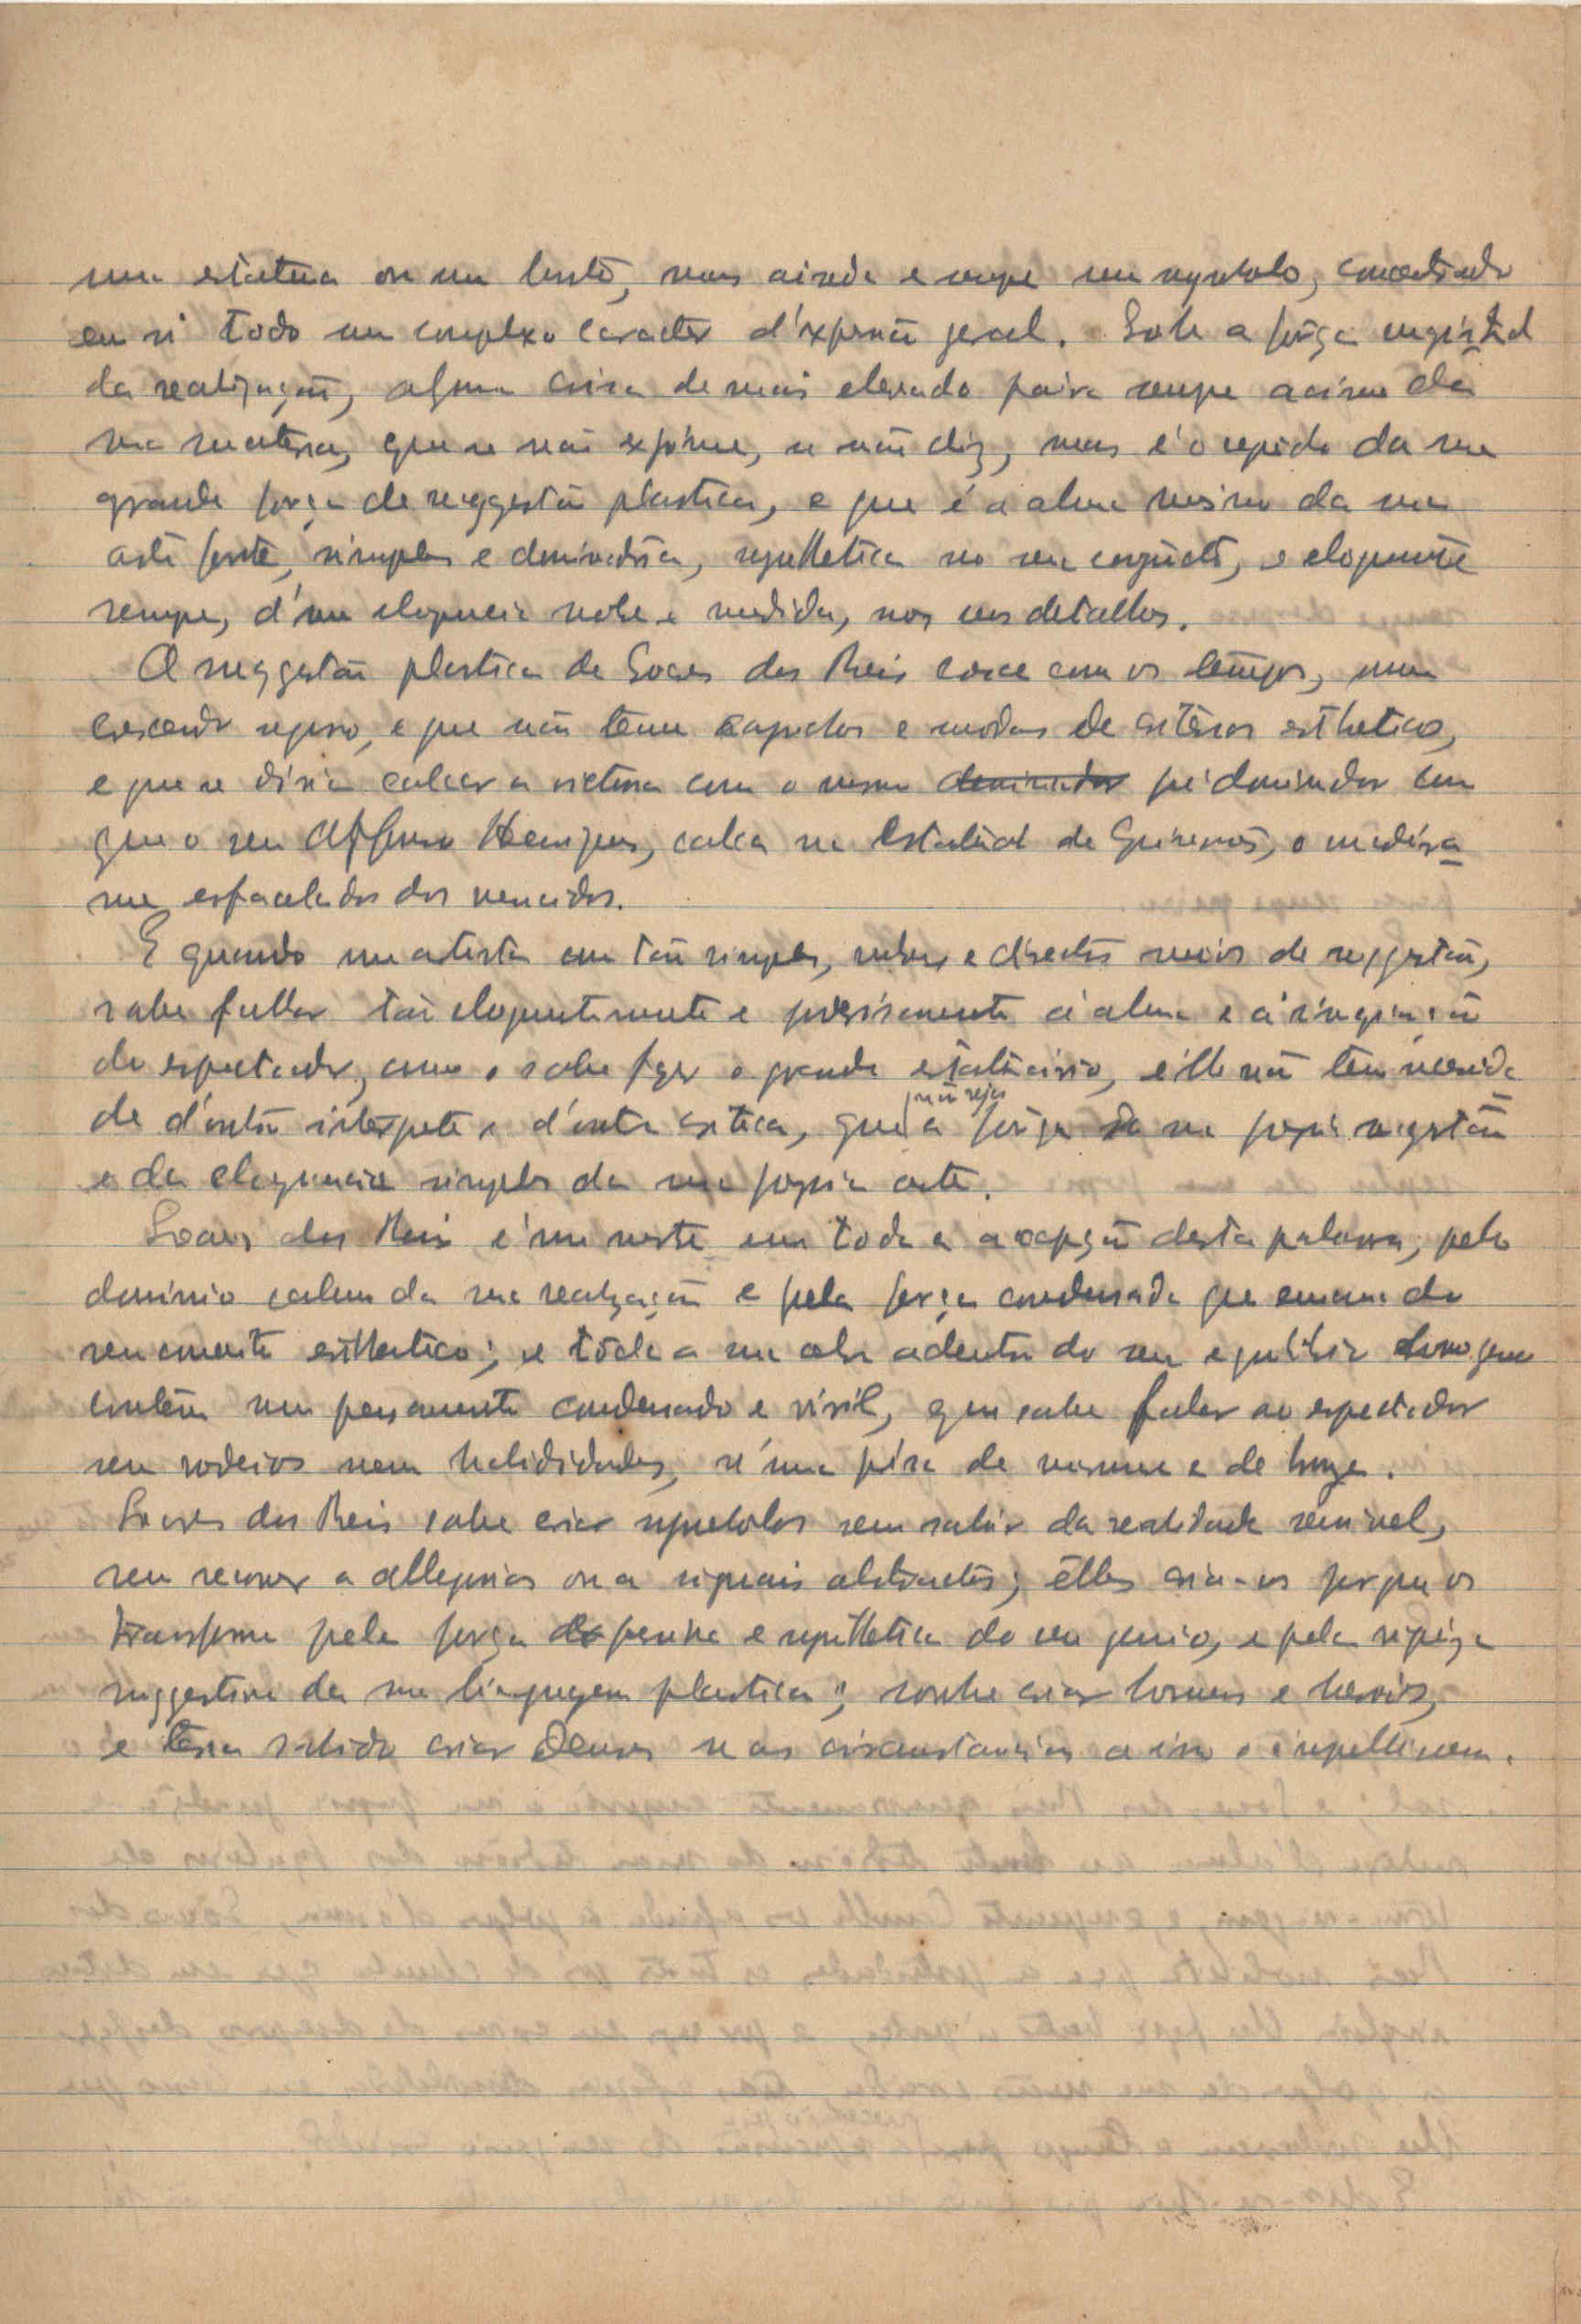 uma estatua ou um busto, mas ainda e sempre um symbolo, concentrando
em si todo um complexo caracter d'expressão geral. Sob a fôrça magistral
da realização, alguma coisa de mais elevado paira sempre acima da
sua materia, que se não exprime, se não diz, mas é o segredo da sua
grande força de suggestão plastica, e que é a alma mesmo da sua
arte forte, simples e dominadora, synthetica no seu conjuncto, e eloquente
sempre, d'uma eloquencia nobre e medida, nos seus detalhes.
A suggestão plastica de Soares dos Reis cresce com os tempos, num
crescendo seguro, e que não teme caprichos e modas de criterios estheticos,
e que se diria calcar a victoria com o mesmo dominador pé dominador com
que o seu Affonso Henriques, calca na Estatua de Guimarães, o
esfacelados dos vencidos.
E quando um artista com tão simples, nobres e directos meios de suggestão,
sabe fallar tão eloquentemente e precisamente á alma e á imaginação
do espectador, como o sabe fazer o grande estatuario, êlle não tem necessida
de d'outro interprete e d'outra critica, que não seja a fôrça da sua propria sugestão
e da eloquencia simples da sua propria arte.
Soares dos Reis é um mestre em toda a acepção desta palavra, pelo
dominio calmo da sua realização e pela força condensada que emana do
seu conceito esthetico; e tôda a sua obra adentro do seu equilibrio homogeneo
contêm um pensamento condensado e viril, que sabe falar ao espectador
sem rodeios nem habilidades, n'uma pôse de marmore e de bronze.
Soares dos Reis sabe criar symbolos sem sahir da realidade sensivel,
sem recorrer a allegorias ou a signaes abstractos; êlles cria-os porque os
transforma pela força expressiva e synthetica do seu genio, e pela
suggestiva da sua linguagem plastica; soube criar homens e heroes,
e teria sabido criar Deuses se as circunstancias a isso o impellissem.